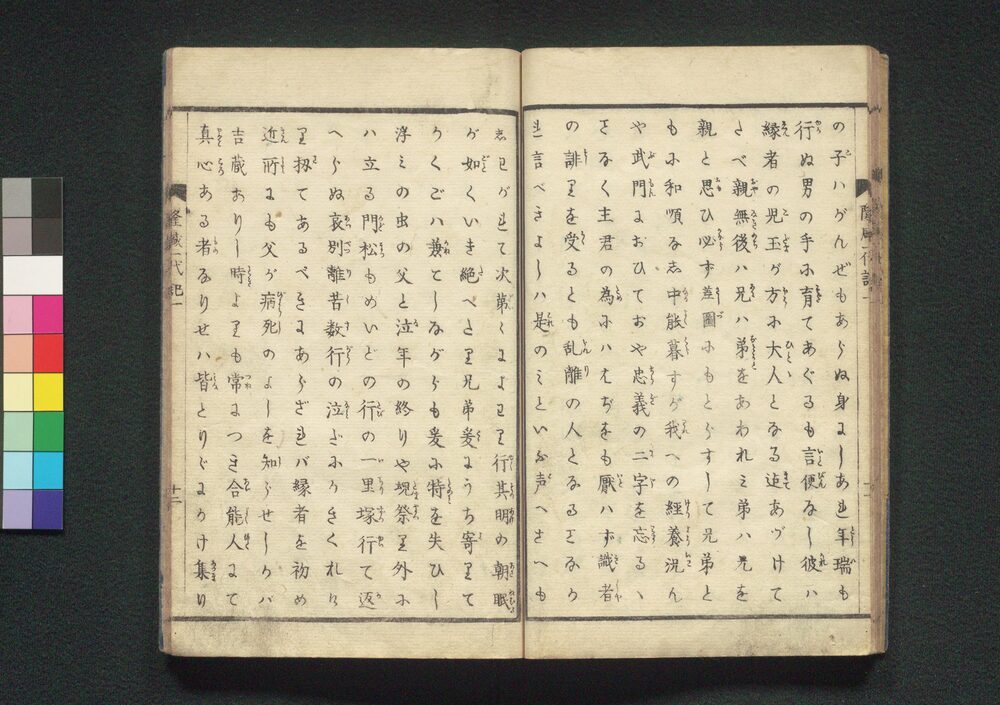 の子ハがんぜもあらぬ身にしあれ年瑞も
行ぬ男の手に育てあぐるも言便なし彼ハ
縁者の児玉が方に大人となる迄あづけて
さべ親無後ハ兄ハ弟をあわれミ弟ハ兄を
親と思ひ必ず差圖にもとらずして兄弟と
もに和順な志中能暮すが我への経養況ん
や武門においておや忠義の二字を忘るゝ
となく主君の為にハはぢをも厭ハず識者
の誹りを受るとも乱離の人となるとなか
れ言べきよしハ是のミといふ声へさへも
志はがれて次第〱によはり行其明の朝眠
が如くいき絶べたり兄弟爰にうち寄りて
かくごハ兼としながらも爰に特を失ひし
浮ミの虫の父と泣年の終りや現祭り外に
ハ立る門松もめいどの行の一里塚行て返
へらぬ哀別離苦数行の泣ざにかきくれり
り扨てあるべきにあらざれバ縁者を初め
近所にも父が病死のよしを知らせしかバ
吉蔵おりし時よりも常につき合能人にて
真心ある者なりせハ皆とりどりにかけ集り
隆盛一代記一
十二